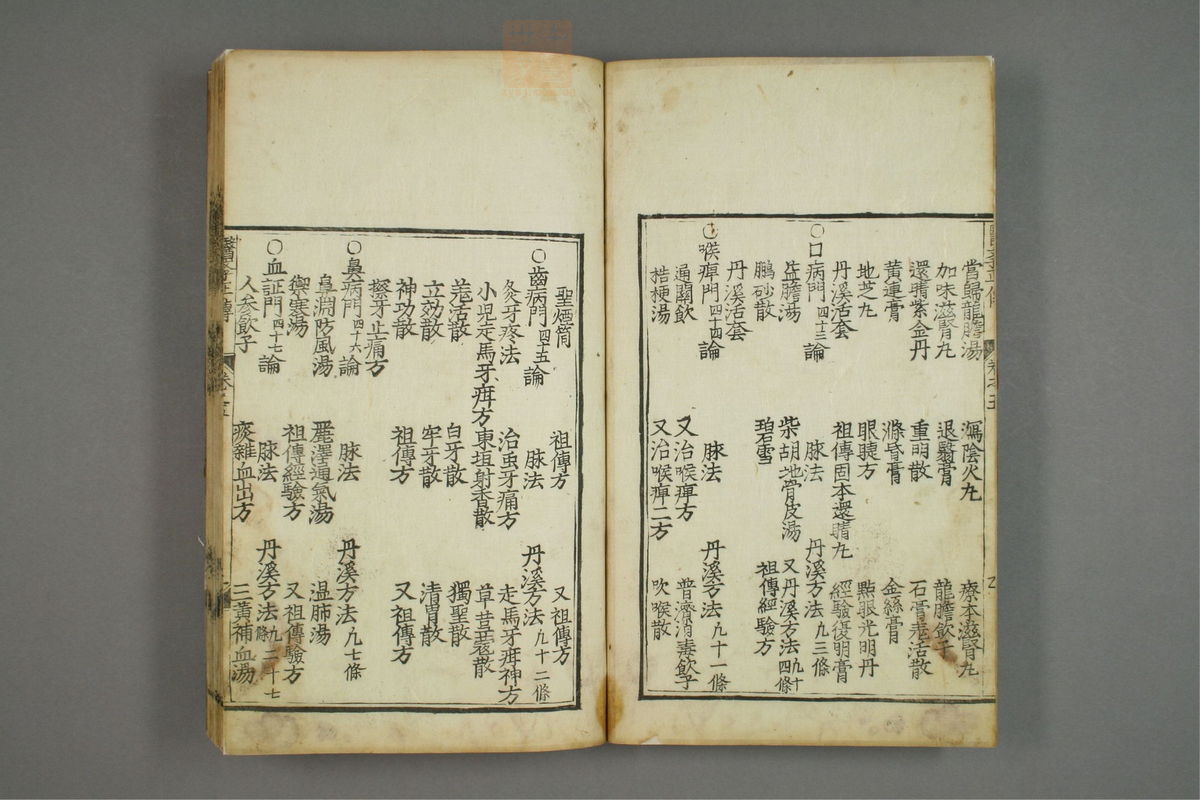 當歸龍膽湯 瀉陰火丸 療本滋腎丸
加味滋腎丸 退翳膏 龍膽飲子
還睛紫金丹 重明散 石膏羌活散
黃連膏 滌昏膏 金絲膏
地芝丸 眼睫方 㸃眼光明丹
丹溪活套 祖傳固本還睛丸 經驗復明膏
〇口病門四十三論 脉法 丹溪方法凡三條
益膽湯 柴胡地骨皮湯 又丹溪方法凡十四條
鵬砂散 碧雪 祖傳經驗方
丹溪活套
〇喉痺門四十四論 脉法 丹溪方法凡十一條
通關飲 又治喉痺方 普濟消毒飲子
桔梗湯 又治喉痺二方 吹喉散
聖煙筒 祖傳方 又祖傳方
〇齒病門四十五論 脉法 丹溪方法凡十二條
灸牙疼法 治虫牙痛方 走馬牙疳神方
小児走馬牙疳方 東垣射香散 草荳蔲散
羗活散 白牙散 獨聖散
立効散 牢牙散 清胃散
神功散 祖傳方 又祖傳方
擦牙止痛方
〇鼻病門四十六論 脉法 丹溪方法凡七條
鼻淵防風湯 麗澤通氣湯 温肺湯
禦寒湯 祖傳經驗方 又祖傳驗方
〇血証門四十七論 脉法 丹溪方法凡二十七條
人参飲子 痰雜血出方 三黃補血湯
卷之五